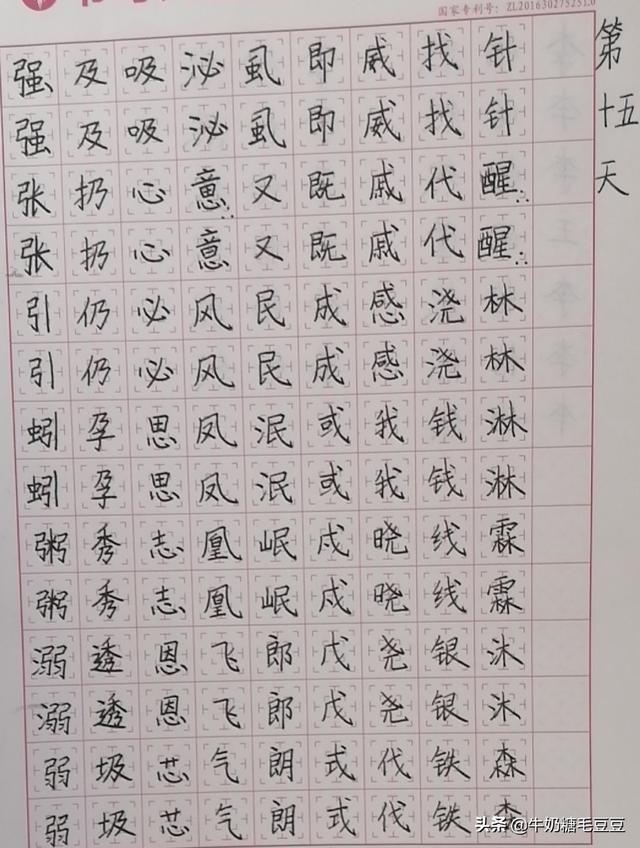 国家专利号: ZL201630275251.0
第十五天
强及吸泌虱即威找针
强及吸泌虱即威找针
张扔心意又既戚代醒
张扔心意又既戚代醒
引仍必风民成感浇林
引仍必风民成感浇林
蚓孕思凤泯或我钱淋
蚓孕思凤泯或我钱淋
粥秀志凰岷戍晓线霖
粥秀志凰岷戍晓线霖
溺透恩飞郎戊尧银沐
溺透恩飞郎戊尧银沐
弱圾芯气朗式伐铁森
弱圾芯气朗式伐铁森
头条 @牛奶糖毛豆豆